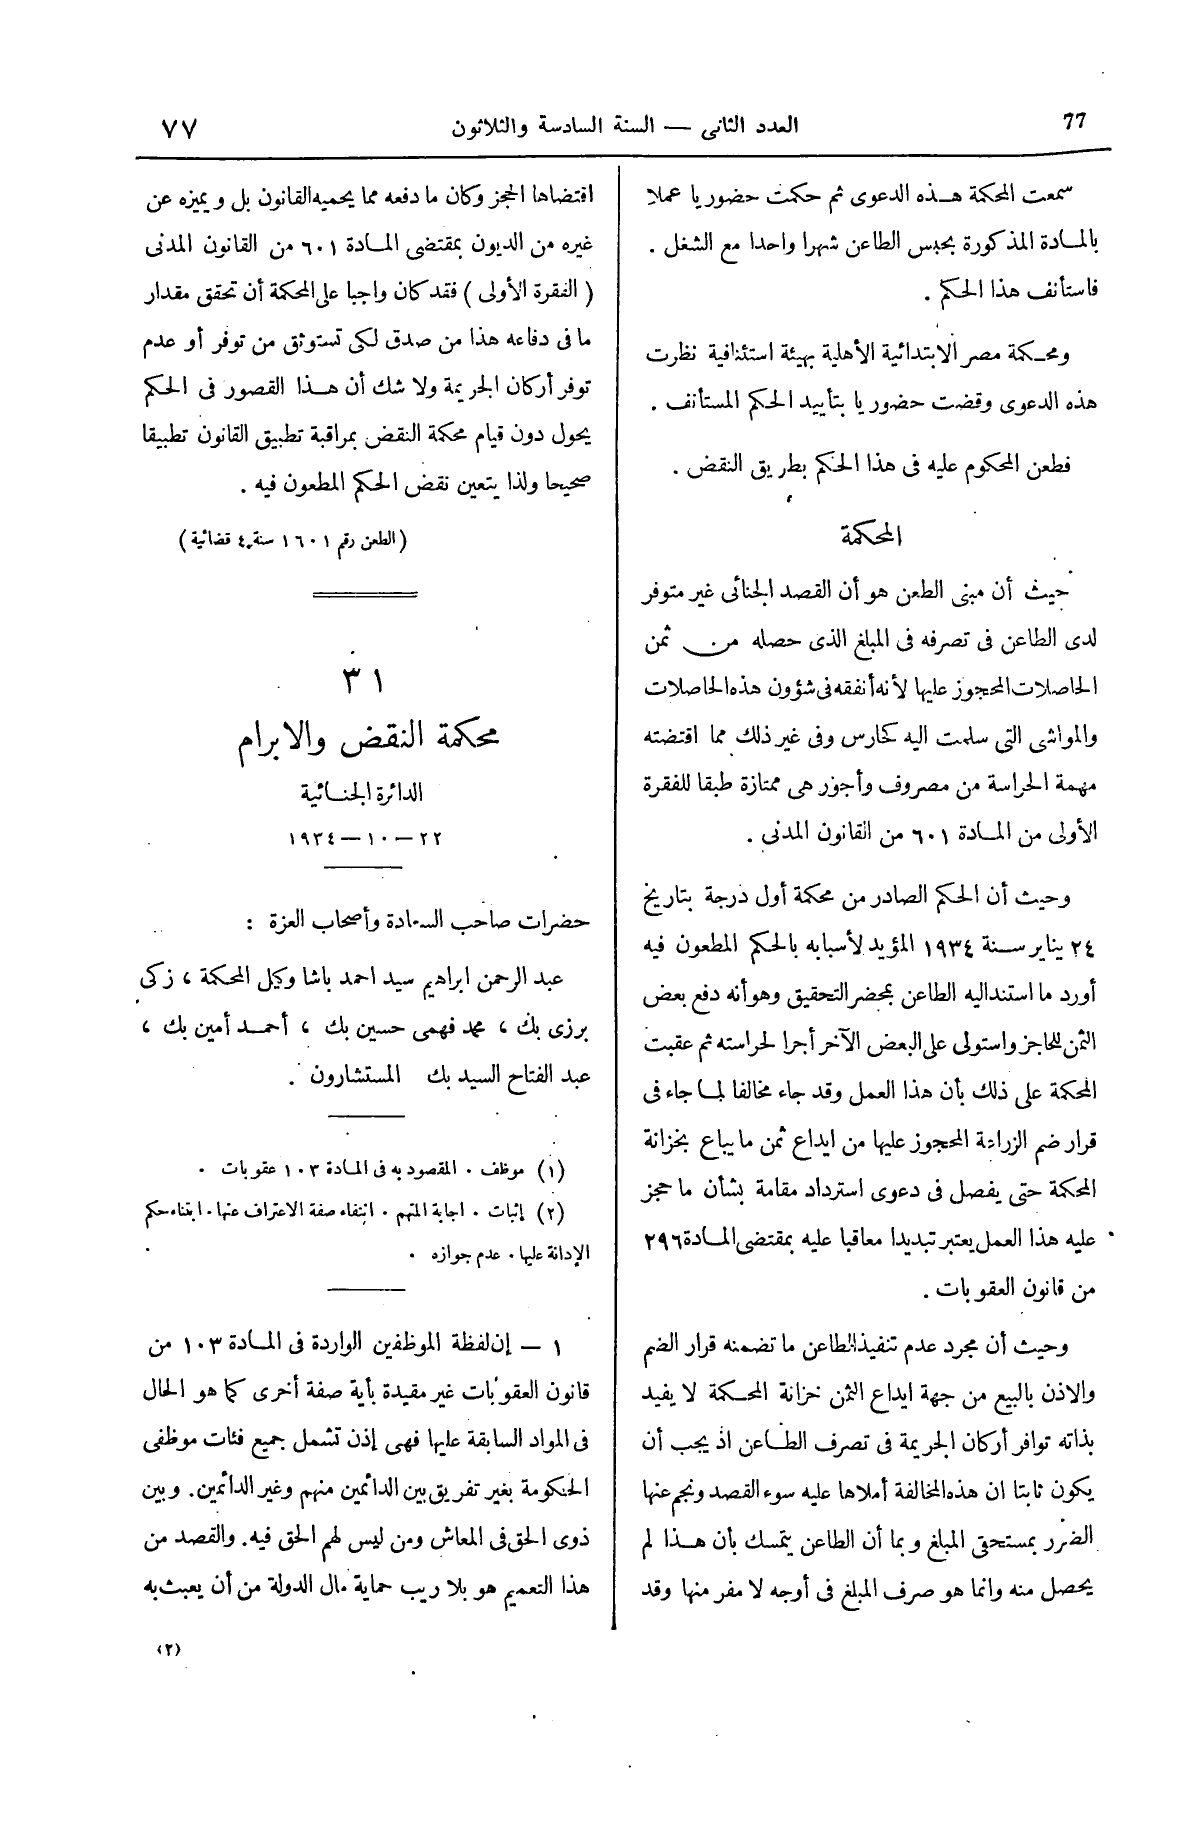 77
العدد الثانى — السنة السادسة والثلاثون
٧٧
سمعت المحكمة هذه الدعوى ثم حكمت حضوريا عملا
بالمادة المذكورة بحبس الطاعن شهرا واحدا مع الشغل .
فاستأنف هذا الحكم .
ومحكمة مصر الابتدائية الأهلية بهيئة استئنافية نظرت
هذه الدعوى وقضت حضوريا بتأييد الحكم المستأنف .
فطعن المحكوم عليه فى هذا الحكم بطريق النقض .
المحكمة
حيث أن مبنى الطعن هو أن القصد الجنائى غير متوفر
لدى الطاعن فى تصرفه فى المبلغ الذى حصله من ثمن
الحاصلات المحجوز عليها لأنه أنفقه فى شؤون هذه الحاصلات
والمواشى التى سلمت اليه كحارس وفى غير ذلك مما اقتضته
مهمة الحراسة من مصروف وأجور هى ممتازة طبقا للفقرة
الأولى من المادة ٦٠١ من القانون المدنى .
وحيث أن الحكم الصادر من محكمة أول درجة بتاريخ
٢٤ يناير سنة ١٩٣٤ المؤيد لأسبابه بالحكم المطعون فيه
أورد ما استند اليه الطاعن بمحضر التحقيق وهو أنه دفع بعض
الثمن للحاجز واستولى على البعض الآخر أجرا لحراسته ثم عقبت
المحكمة على ذلك بأن هذا العمل وقد جاء مخالفا لما جاء فى
قرار ضم الزراعة المحجوز عليها من ايداع ثمن ما يباع بخزانة
المحكمة حتى يفصل فى دعوى استرداد مقامة بشأن ما حجز
عليه هذا العمل يعتبر تبديدا معاقبا عليه بمقتضى المادة ٢٩٦
من قانون العقوبات .
وحيث أن مجرد عدم تنفيذ الطاعن ما تضمنه قرار الضم
والاذن بالبيع من جهة ايداع الثمن خزانة المحكمة لا يفيد
بذاته توافر أركان الجريمة فى تصرف الطاعن اذ يجب أن
يكون ثابتا ان هذه المخالفة أملاها عليه سوء القصد ونجم عنها
الضرر بمستحق المبلغ وبما أن الطاعن يتمسك بأن هذا لم
يحصل منه وانما هو صرف المبلغ فى أوجه لا مفر منها وقد
اقتضاها الحجز وكان ما دفعه مما يحميه القانون بل ويميزه عن
غيره من الديون بمقتضى المادة ٦٠١ من القانون المدنى
( الفقرة الأولى ) فقد كان واجبا على المحكمة أن تحقق مقدار
ما فى دفاعه هذا من صدق لكى تستوثق من توفر أو عدم
توفر أركان الجريمة ولا شك أن هذا القصور فى الحكم
يحول دون قيام محكمة النقض بمراقبة تطبيق القانون تطبيقا
صحيحا ولذا يتعين نقض الحكم المطعون فيه .
(الطعن رقم ١٦٠١ سنة ٤ قضائية)
٣١
محكمة النقض والابرام
الدائرة الجنائية
٢٢ — ١٠ — ١٩٣٤
حضرات صاحب السعادة وأصحاب العزة :
عبد الرحمن ابراهيم سيد احمد باشا وكيل المحكمة ، زكى
برزى بك ، محمد فهمى حسين بك ، أحمد أمين بك ،
عبد الفتاح السيد بك المستشارون .
(١) موظف . المقصود به فى المادة ١٠٣ عقوبات .
(٢) إثبات . اجابة المتهم . انتفاء صفة الاعتراف عنها . ابتناء حكم
الإدانة عليها . عدم جوازه .
١ — إن لفظة الموظفين الواردة فى المادة ١٠٣ من
قانون العقوبات غير مقيدة بأية صفة أخرى كما هو الحال
فى المواد السابقة عليها فهى إذن تشمل جميع فئات موظفى
الحكومة بغير تفريق بين الدائمين منهم وغير الدائمين. وبين
ذوى الحق فى المعاش ومن ليس لهم الحق فيه. والقصد من
هذا التعميم هو بلا ريب حماية مال الدولة من أن يعبث به
(٢)